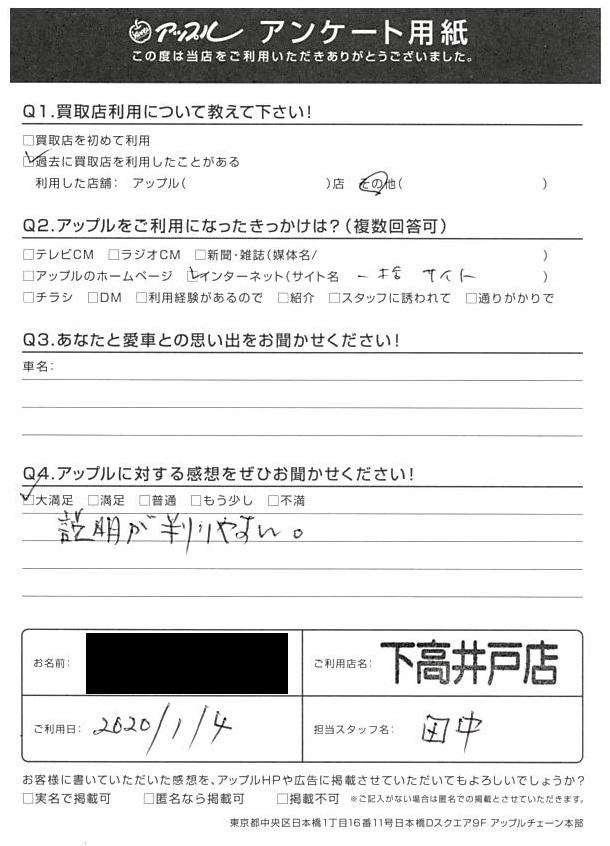 アップル アンケート用紙
この度は当店をご利用いただきありがとうございました。
Q1.買取店利用について教えて下さい！
□買取店を初めて利用
☑過去に買取店を利用したことがある
利用した店舗： アップル( )店 その他( )
Q2.アップルをご利用になったきっかけは？(複数回答可)
□テレビCM □ラジオCM □新聞・雑誌(媒体名/ )
□アップルのホームページ ☑インターネット(サイト名 一括サイト )
□チラシ □DM □利用経験があるので □紹介 □スタッフに誘われて □通りがかりで
Q3.あなたと愛車との思い出をお聞かせください！
車名：
Q4.アップルに対する感想をぜひお聞かせください！
☑大満足 □満足 □普通 □もう少し □不満
説明が判りやすい。
お名前： ご利用店名： 下高井戸店
ご利用日： 2020/1/4 担当スタッフ名： 田中
お客様に書いていただいた感想を、アップルHPや広告に掲載させていただいてもよろしいでしょうか？
□実名で掲載可 □匿名なら掲載可 □掲載不可 ※ご記入がない場合は匿名での掲載とさせていただきます。
東京都中央区日本橋1丁目16番11号日本橋Dスクエア9F アップルチェーン本部